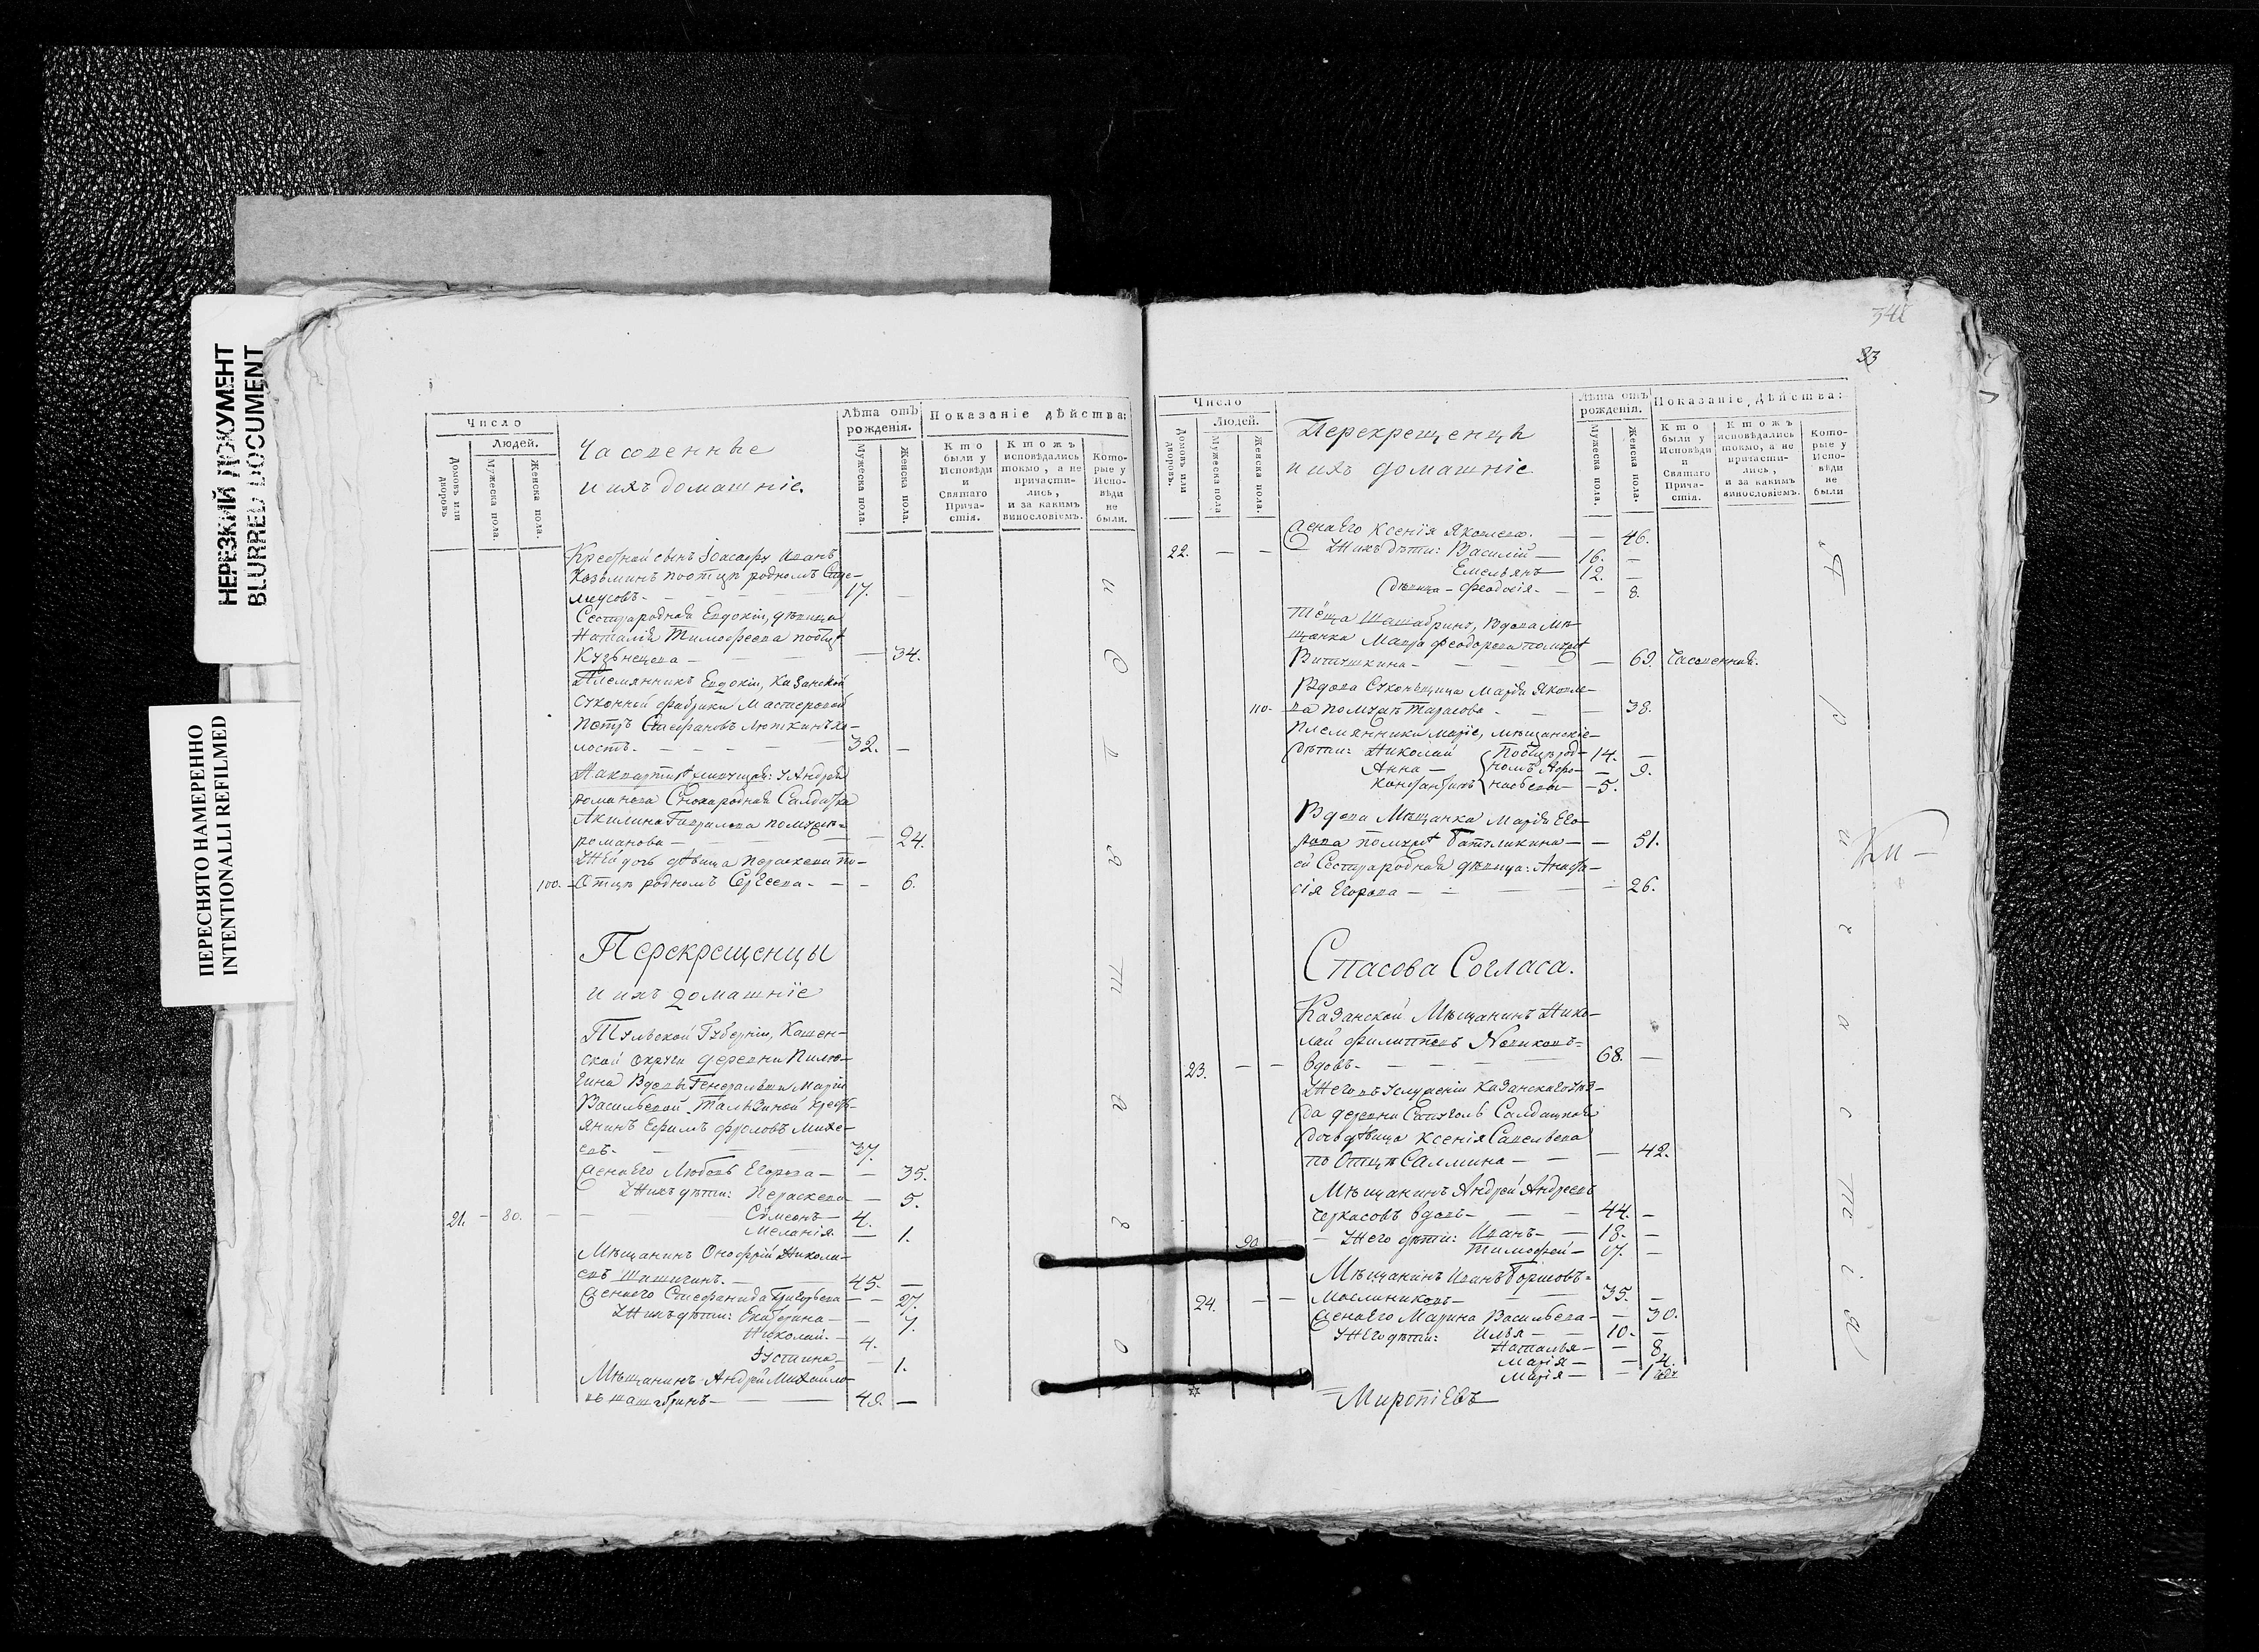 НЕРЕЗКИЙ ДОКУМЕНТ
BLURRED DOCUMENT
ПЕРЕСНЯТО НАМЕРЕННО
INTENTIONALLI REFILMED
Число
Людей.
Домовъ или дворовъ
Мужеска пола.
Женска пола.
Часовенные
и ихъ домашніе.
Лѣта отъ рожденія.
Мужеска пола.
Женска пола.
Показаніе дѣйства:
Кто были у Исповѣди и Святаго Прича-стія.
Ктожъ исповѣдались токмо, а не причасти-лись, и за какимъ винословіемъ.
Кото-рые у Испо-вѣди не были.
Крестной сынъ Іоасафу Иванъ
Козьминъ по отцѣ родномъ
17. —
Сестра родная Евдокіи, дѣвица
Наталія Тимофеева по отцѣ
Кузьнецова — — 34.
Племянникъ Евдокіи, Казанской
Суконной фабрики Мастеровой
Петръ Стефановъ Люткинъ хо-
лостъ — 32. —
Андрея
Романова Сноха родная Салдатка
Акилина Гаврилова по мужѣ
Романова — — 24.
У Ней дочь дѣвица Параскева по
100. Отцѣ родномъ Сергеева — — 6.
Перекрещенцы
и ихъ домашніе
Тульской Губерніи, Кашен-
ской округи деревни Пилю-
гина Вдовы Генеральши Маріи
Васильевой Талызиной крест-
янинъ Ефимъ Фроловъ Михе-
евъ — 37.
Жена Его Любовь Егорова — — 35.
У Нихъ дѣти: Параскева — — 5.
21. — 80. — Сѵмеонъ — 4.
Меланія — — 1.
Мѣщанинъ Онофрій Никола-
евъ Шишигинъ. — 45. —
Жена его Стефанида Григорьева — — 27.
У Нихъ дѣти: Екатерина — — 7.
Николай. — 4.
Іустина — — 1.
Мѣщанинъ Андрей Михайло-
въ Шатабринъ — 49. —
и
с
п
о
0
341
33
Число
Людей.
Домовъ или дворовъ.
Мужеска пола
Женска пола.
Перекрещенцы
и ихъ домашніе
Лѣта отъ рожденія.
Мужеска пола.
Женска пола.
Показаніе дѣйства:
Кто были у Исповѣди и Святаго Прича-стія.
Ктожъ исповѣдались токмо, а не причасти-лись, и за какимъ винословіемъ.
Кото-рые у Испо-вѣди не были
Жена Его Ксенія Яковлева. — — 46.
22. — — У Нихъ дѣти: Василій — 16. —
Емельянъ — 12. —
Дѣвица — Феодосія — — 8.
Тёща Шатабринъ, Вдова Мѣ-
щанка Мавра Феодорова по мужѣ
— 69. Часовенная.
Вдова Суконьщица Марія Яковле-
110. ва по мужѣ Тарасова — — 38.
Племянники Маріе, мѣщанскіе
дѣти: Николай — 14. —
Анна — — 9.
Константинъ — 5.
Вдова Мѣщанка Марія Его-
рова по мужѣ Батыликина — — 51.
ей Сестра родная дѣвица: Анаста-
сія Егорова — — 26.
Спасова Согласа.
Казанской Мѣщанинъ Нико-
лай Филипповъ Новиковъ
23. — — вдовъ — 68. —
У Него въ услуженіи Казанскаго уѣз-
да деревни Салдацкая
дочь дѣвица Ксенія Савельева
по Отцѣ Салмина — — 42.
Мѣщанинъ Андрей Андреевъ
Черкасовъ вдовъ — 44. —
90 — У Него дѣти: Иванъ — 18. —
Тимофей — 17. —
Мѣщанинъ Иванъ
24. — — Маслениковъ — 35. —
Жена Его Марина Васильева — — 30.
У Него дѣти: Илья — 10. —
Наталья — — 8
Марія — — 4.
Марія — — 1 годъ
Миропіевъ